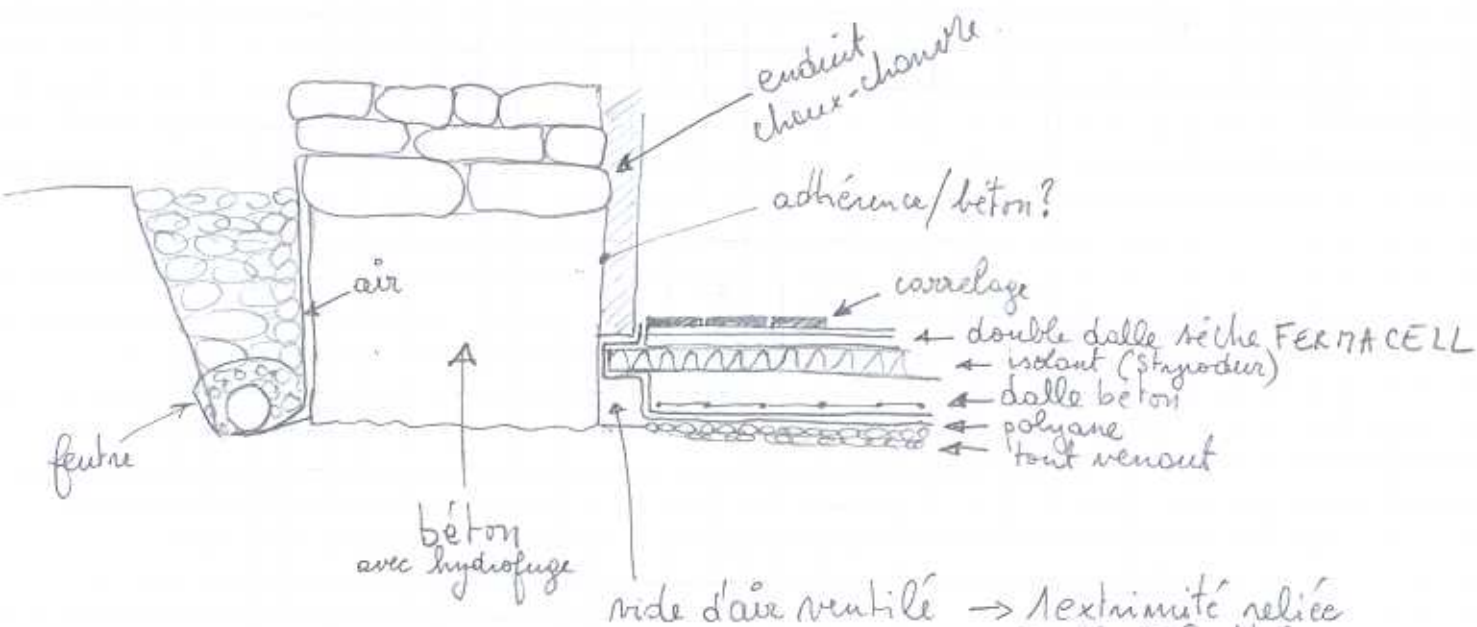 enduit
chaux-chanvre.
adhérence/béton?
air
carrelage
double dalle sèche FERMACELL
isolant (Styrodur)
dalle béton
polyane
tout venant
feutre
béton
avec hydrofuge
vide d'air ventilé → 1 extrimité reliée